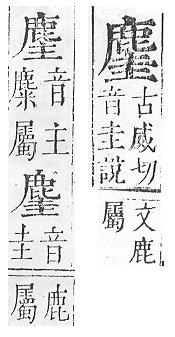 古威切
音圭說
文鹿
屬
麈
音主
麋屬
音
圭
鹿
屬